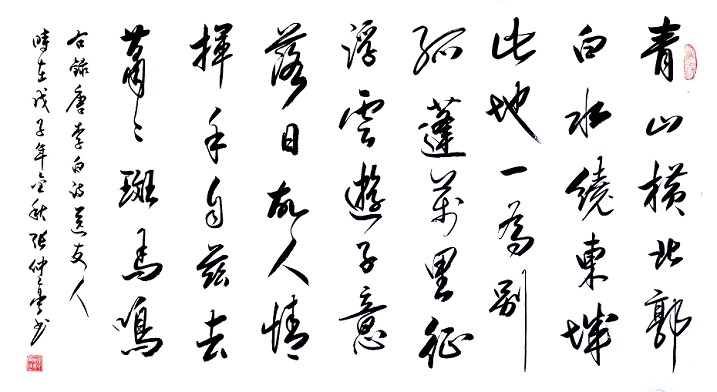 青山横北郭
白水繞東城
此地一為别
孤蓬萬里征
浮雲遊子意
落日故人情
揮手自兹去
蕭〻斑馬鳴
右録唐李白詩送友人
時在戊子年金秋張仲亭書